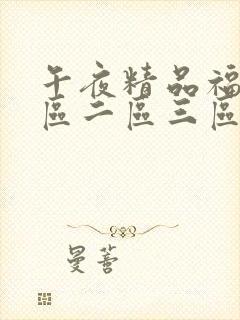 午夜精品福
區二區三區
曼薈